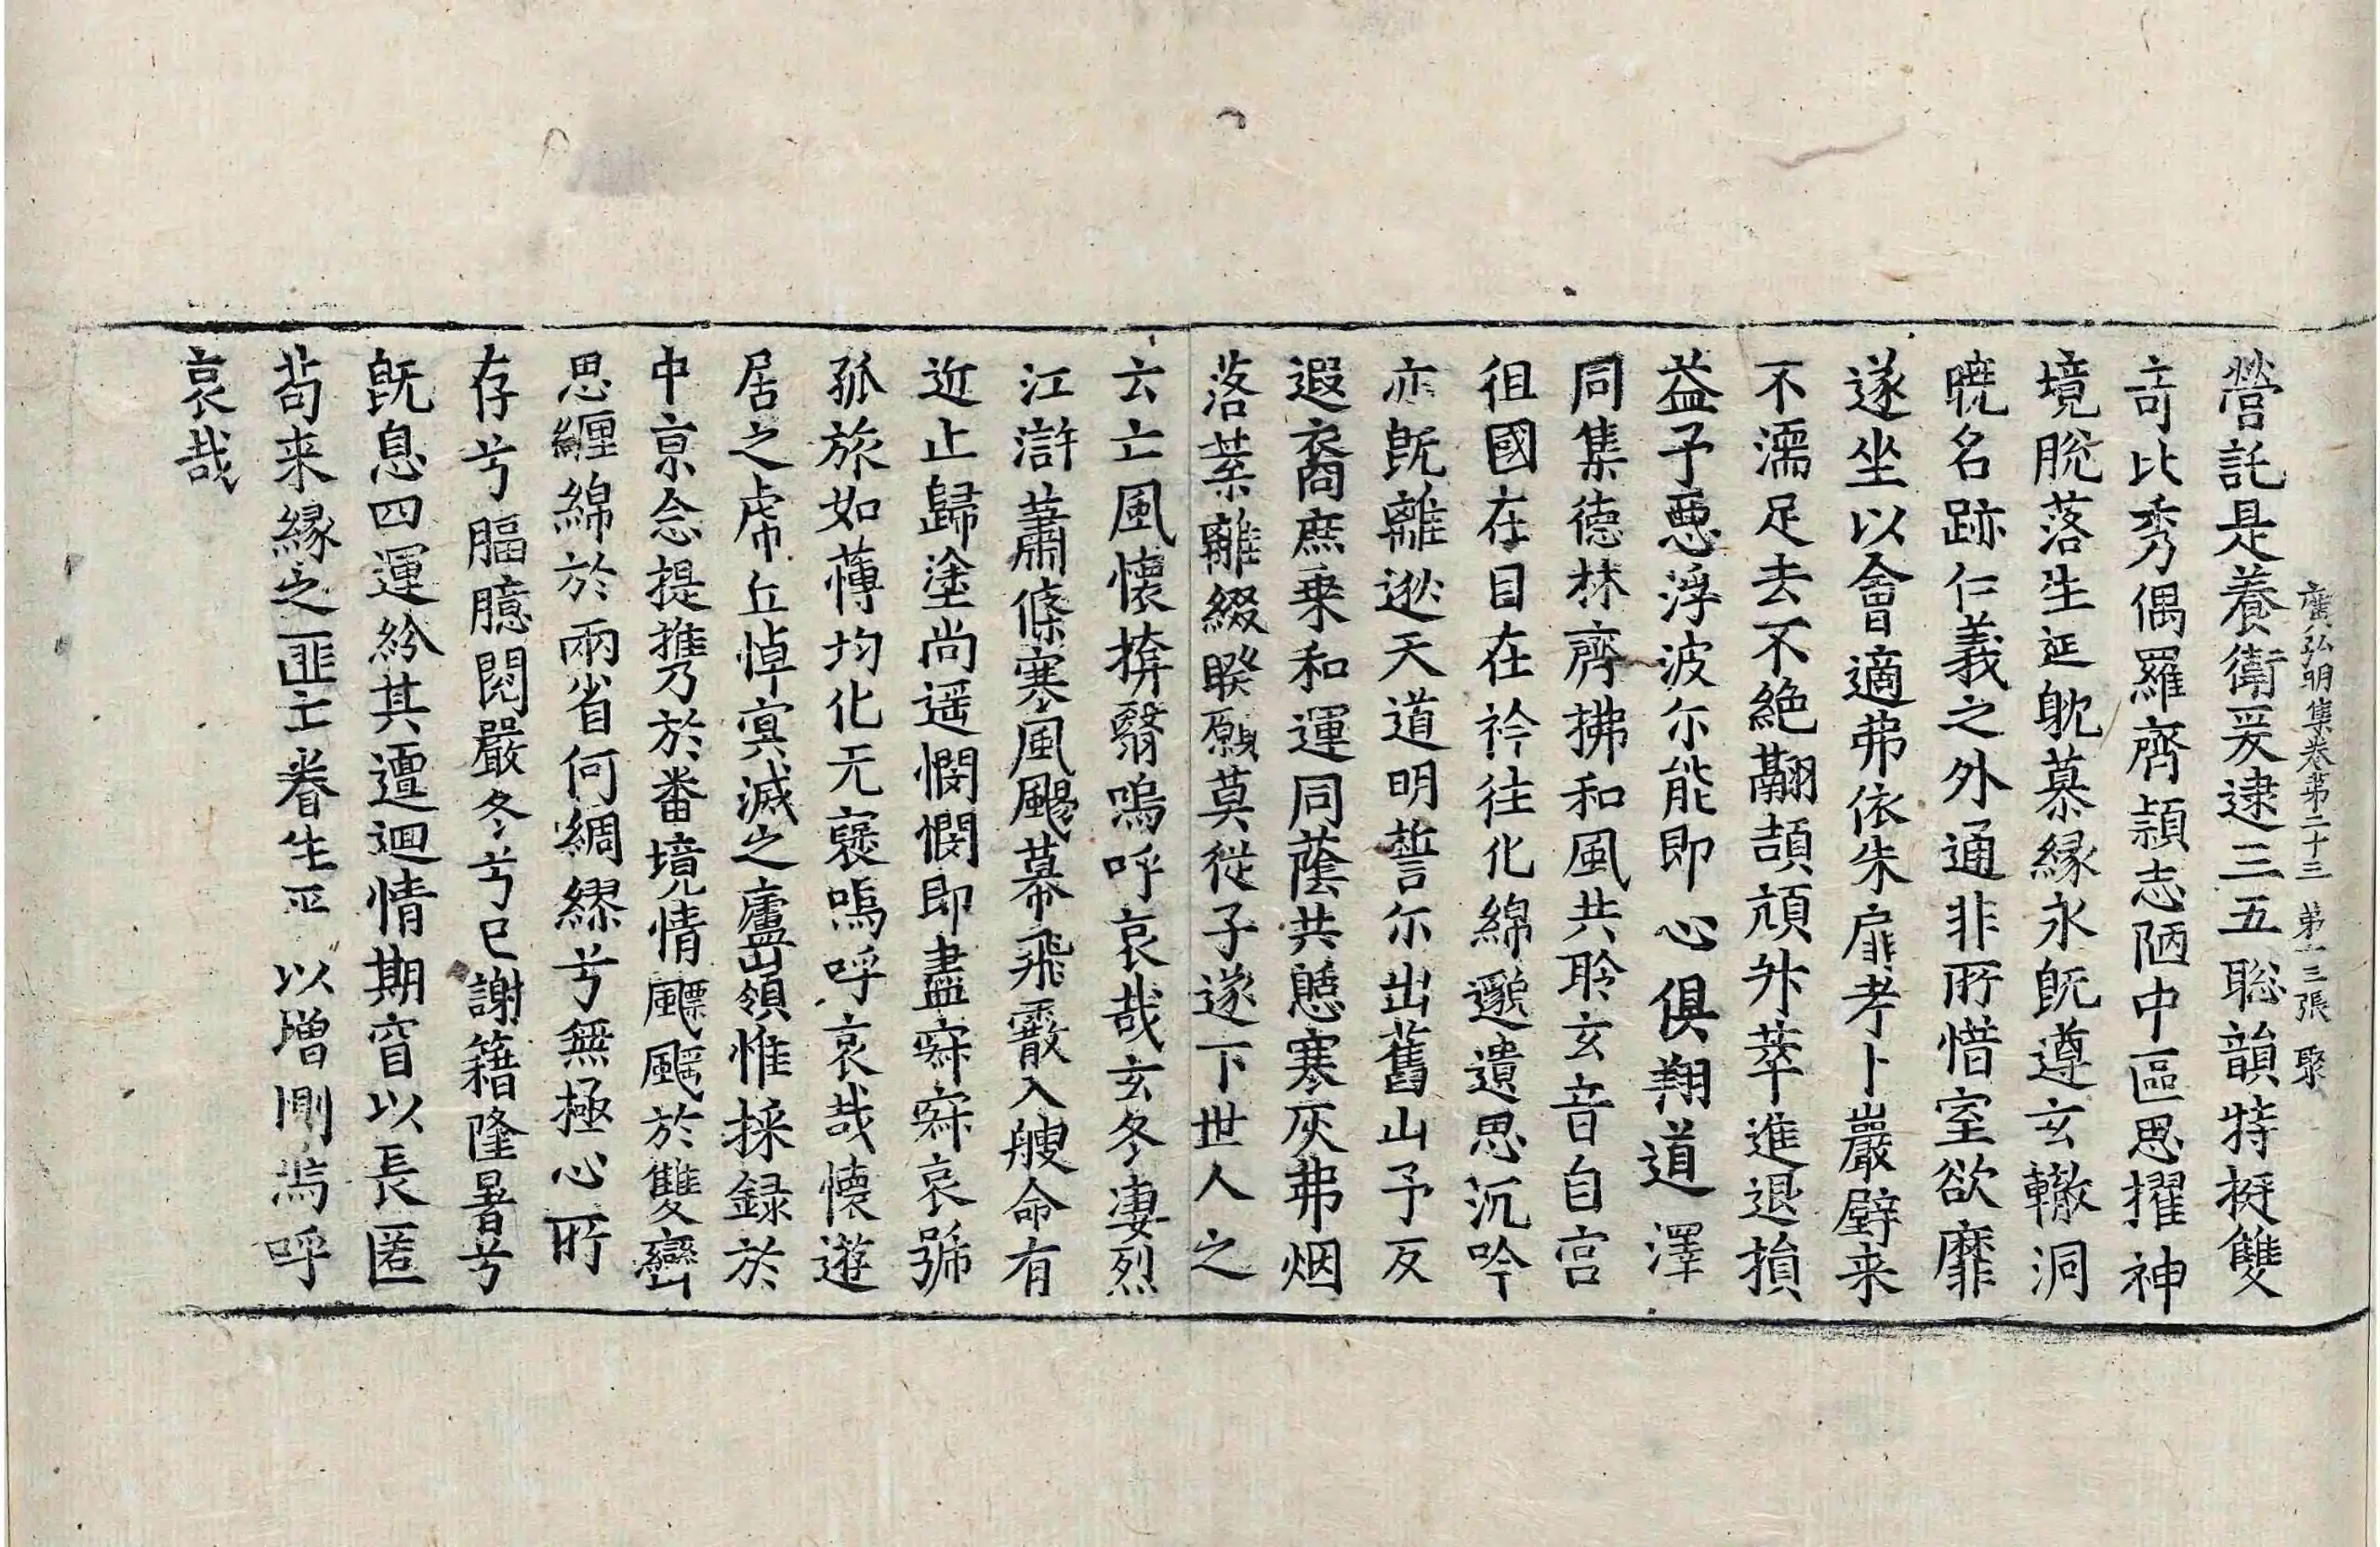 廣弘明集卷苐二十三 苐十三張 聚
營託是養衛爰逮三五聡韻特挺雙
竒比秀偶羅齊穎志陋中區思擢神
境脫落生延躭慕縁永旣遵玄轍洞
曉名跡仁義之外通非所惜室欲靡
遂坐以會適弗依朱扉考卜巖壁来
不濡足去不絶翮頡頏升萃進退損
益子惡浮波尓能即心俱翔道澤
同集德林齊拂和風共聆玄音自宫
徂國在目在衿往化綿邈遺思沉吟
亦旣離逖天道明誓尓出舊山予反
遐裔庶乗和運同蔭共憇寒灰弗烟
落葉離綴睽願莫從子遂下世人之
云亡風懷掩翳嗚呼哀哉玄冬凄烈
江滸蕭條寒風颺幕飛霰入艘命有
近止歸塗尚遥憫憫即盡寂寂哀號
孤旅如薄均化无襃嗚呼哀哉懷遊
居之虎丘悼冥滅之廬嶺惟採録於
中京念提攜乃於番境情飄颻於雙巒
思纒綿於兩省何綢繆兮無極心所
存兮膈臆閱嚴冬兮已謝籍隆暑兮
旣息四運紛其邅迴情期窅以長匿
苟来緣之匪亡眷生平以增惻嗚呼
哀哉